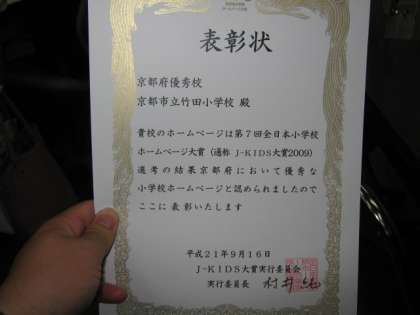 表彰状
京都府優秀校
京都市立竹田小学校 殿
貴校のホームページは第7回全日本小学校
ホームページ大賞（通称 J-KIDS大賞2009）
選考の結果京都府において優秀な
小学校ホームページと認められましたので
ここに表彰いたします
平成21年9月16日
J-KIDS大賞実行委員会
実行委員長 村井純